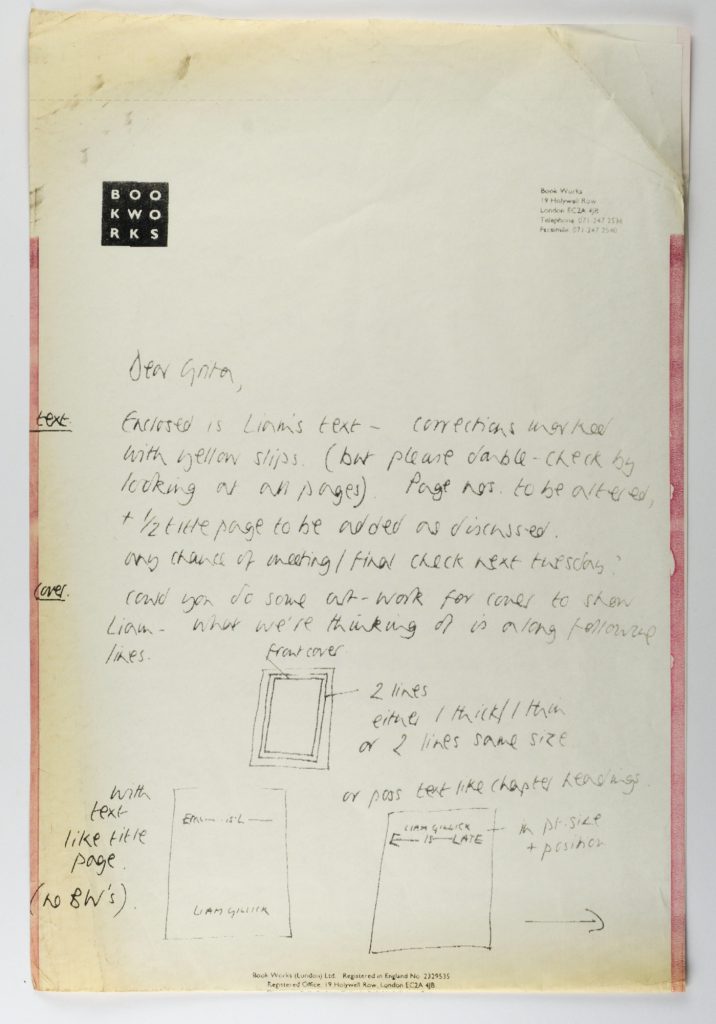 BOO
KWO
RKS
Book Works
19 Holywell Row
London EC2A 4JB
Telephone 071 247 2536
Facsimile 071 247 2540
Dear
text.
Enclosed is Liam's text – corrections marked
with yellow slips. (but please double-check by
looking at all pages). Page nos. to be altered,
+ ½ title page to be added as discussed.
any chance of meeting / final check next tuesday?
cover.
could you do some art-work for cover to show
Liam – what we're thinking of is along following
lines.
front cover
2 lines
either 1 thick/1 thin
or 2 lines same size
or poss text like chapter headings.
with
text
like title
page.
(no BW's).
LIAM GILLICK
LIAM GILLICK
E— IS — LATE
in pt. size
+ position
Book Works (London) Ltd. Registered in England No. 2329535
Registered Office: 19 Holywell Row, London EC2A 4JB